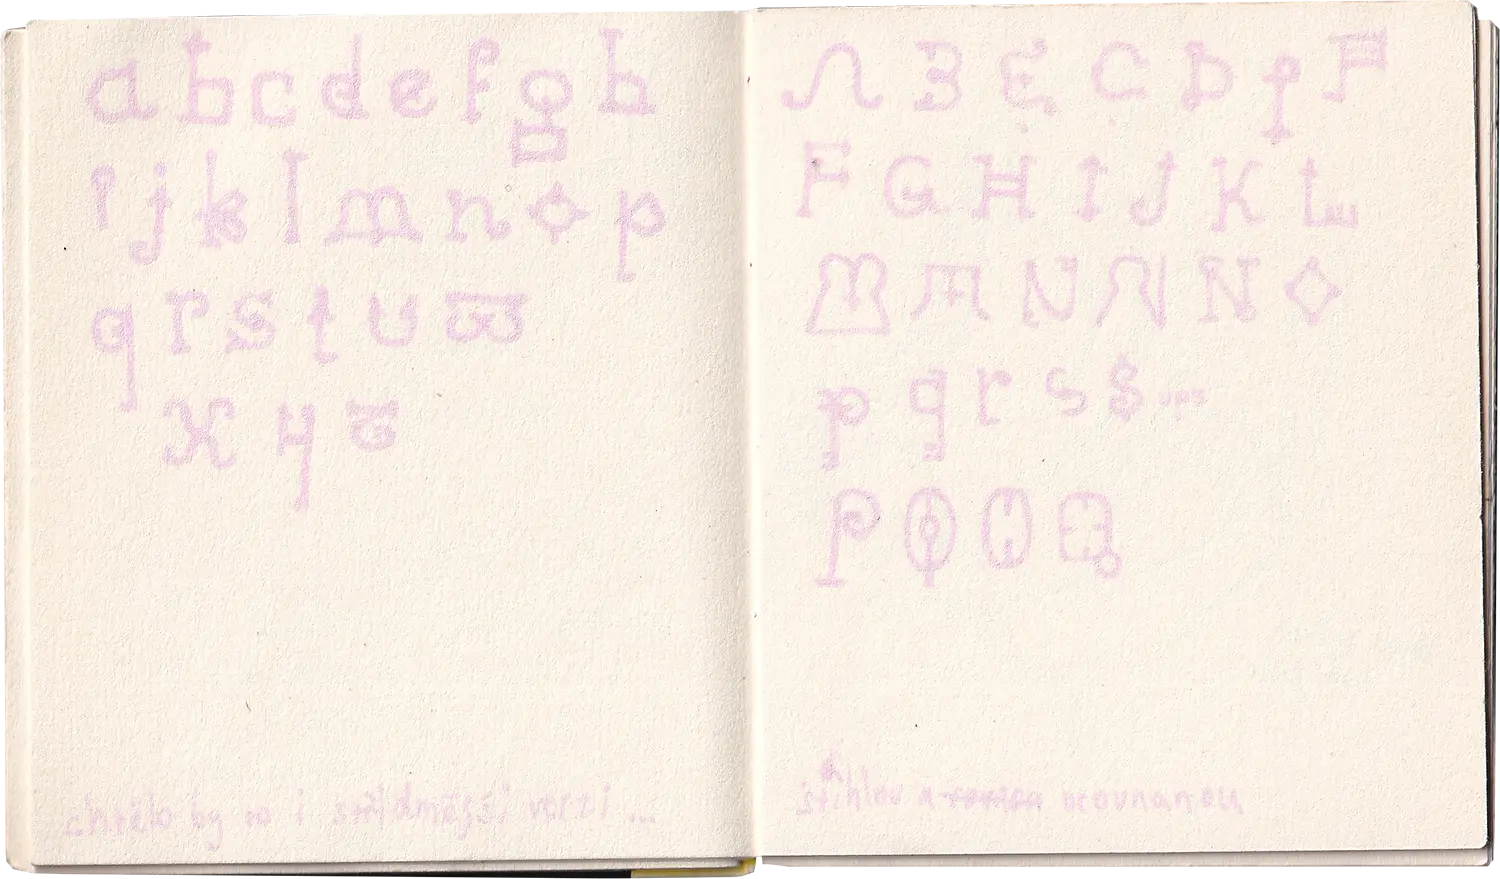 a b c d e f g h
i j k l m n o p
q r s t u w
x y z
chtělo by to i střídmější verzi ...
A B E C D I F
F G H I J K L
M A N N N O
p q r s s ups
P Q Q Q
štíhlou a neovnanou